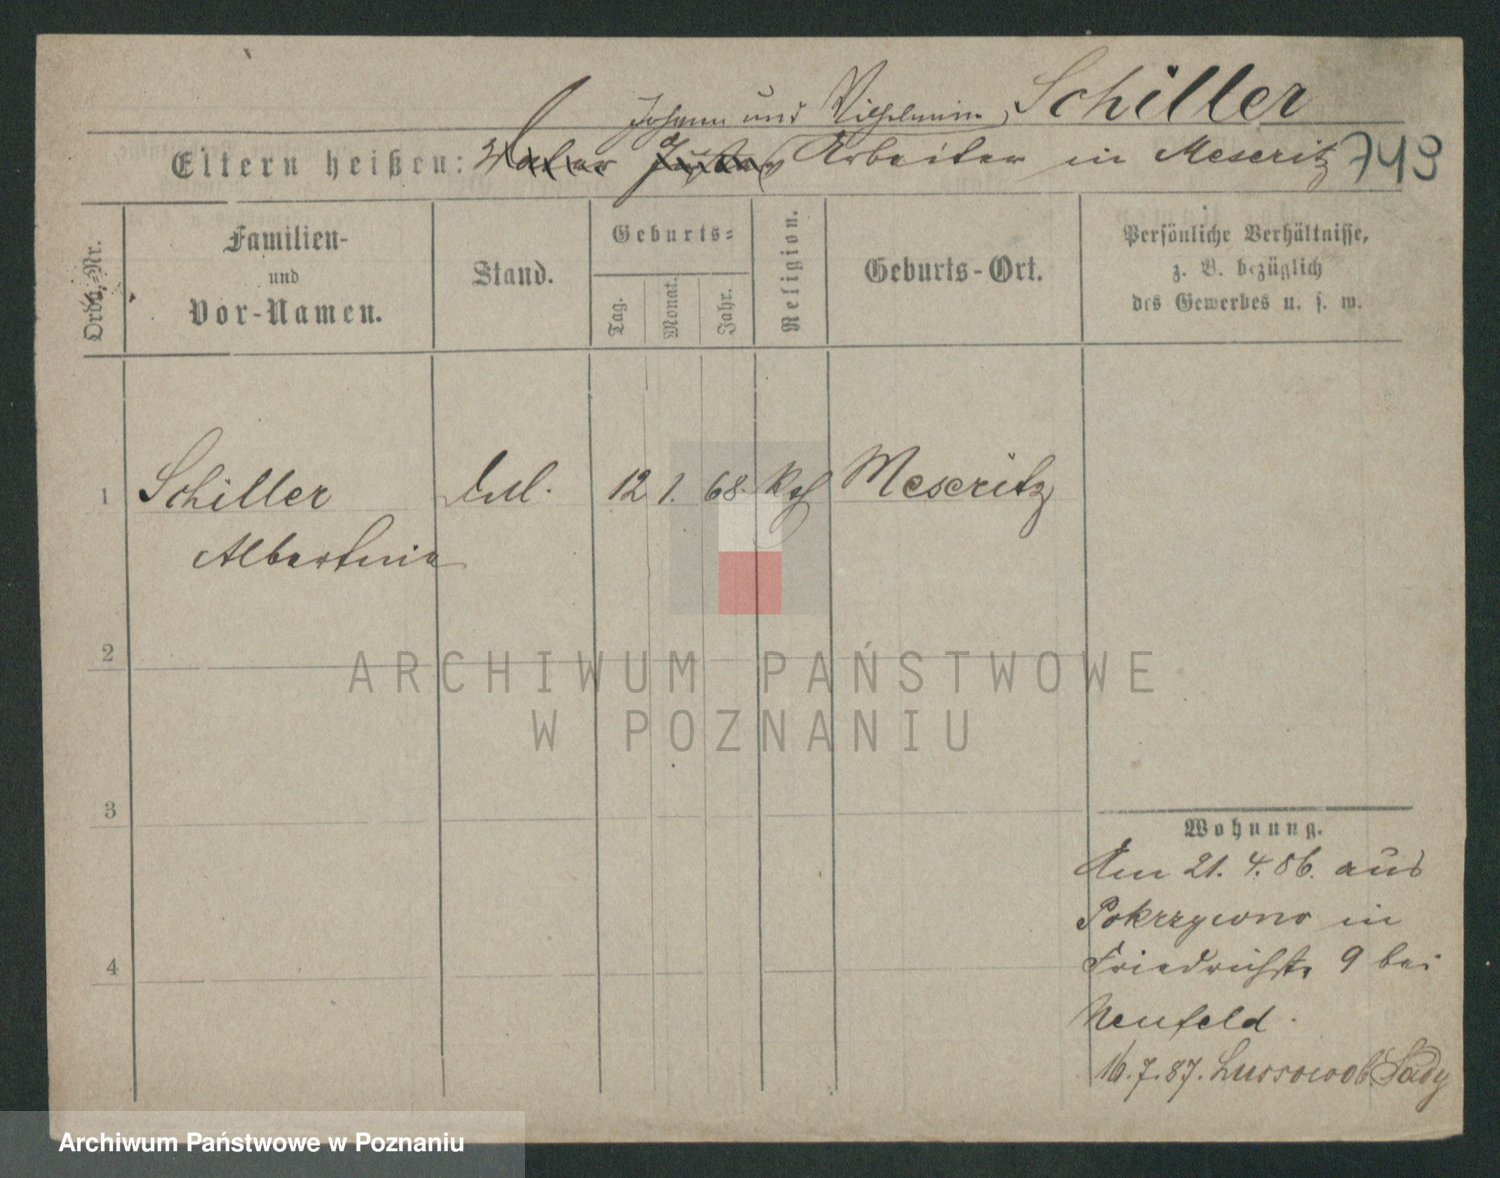 Johann und Wilhelmine Schiller
Eltern heißen: Arbeiter in Meseritz 743
Ordn.-Nr.
Familien-
und
Vor-Namen.
Stand.
Geburts-
Tag.
Monat.
Jahr.
Religion.
Geburts-Ort.
Persönliche Verhältnisse,
z. B. bezüglich
des Gewerbes u. s. w.
1 Schiller 12 1. 68. Meseritz
Albertine
2
3
4
Wohnung.
Am 21. 4. 86. aus
Pokrzywno in
Friedrichstr. 9 bei
Neufeld.
16.7.87. Lussowo b Sady
ARCHIWUM PAŃSTWOWE
W POZNANIU
Archiwum Państwowe w Poznaniu